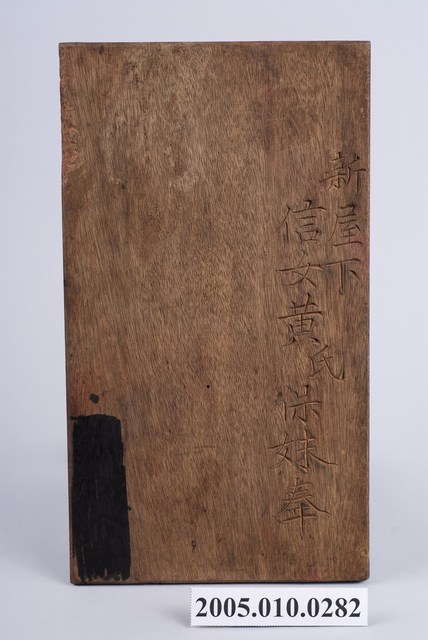 新屋下
信女黄氏保妹奉
2005.010.0282